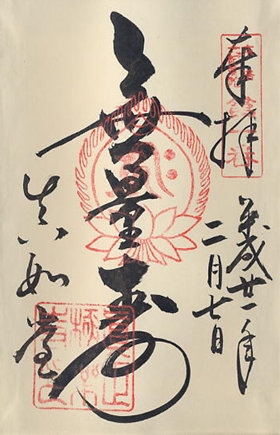 奉拝
平成廿一年
二月七日
無量寿
真如堂